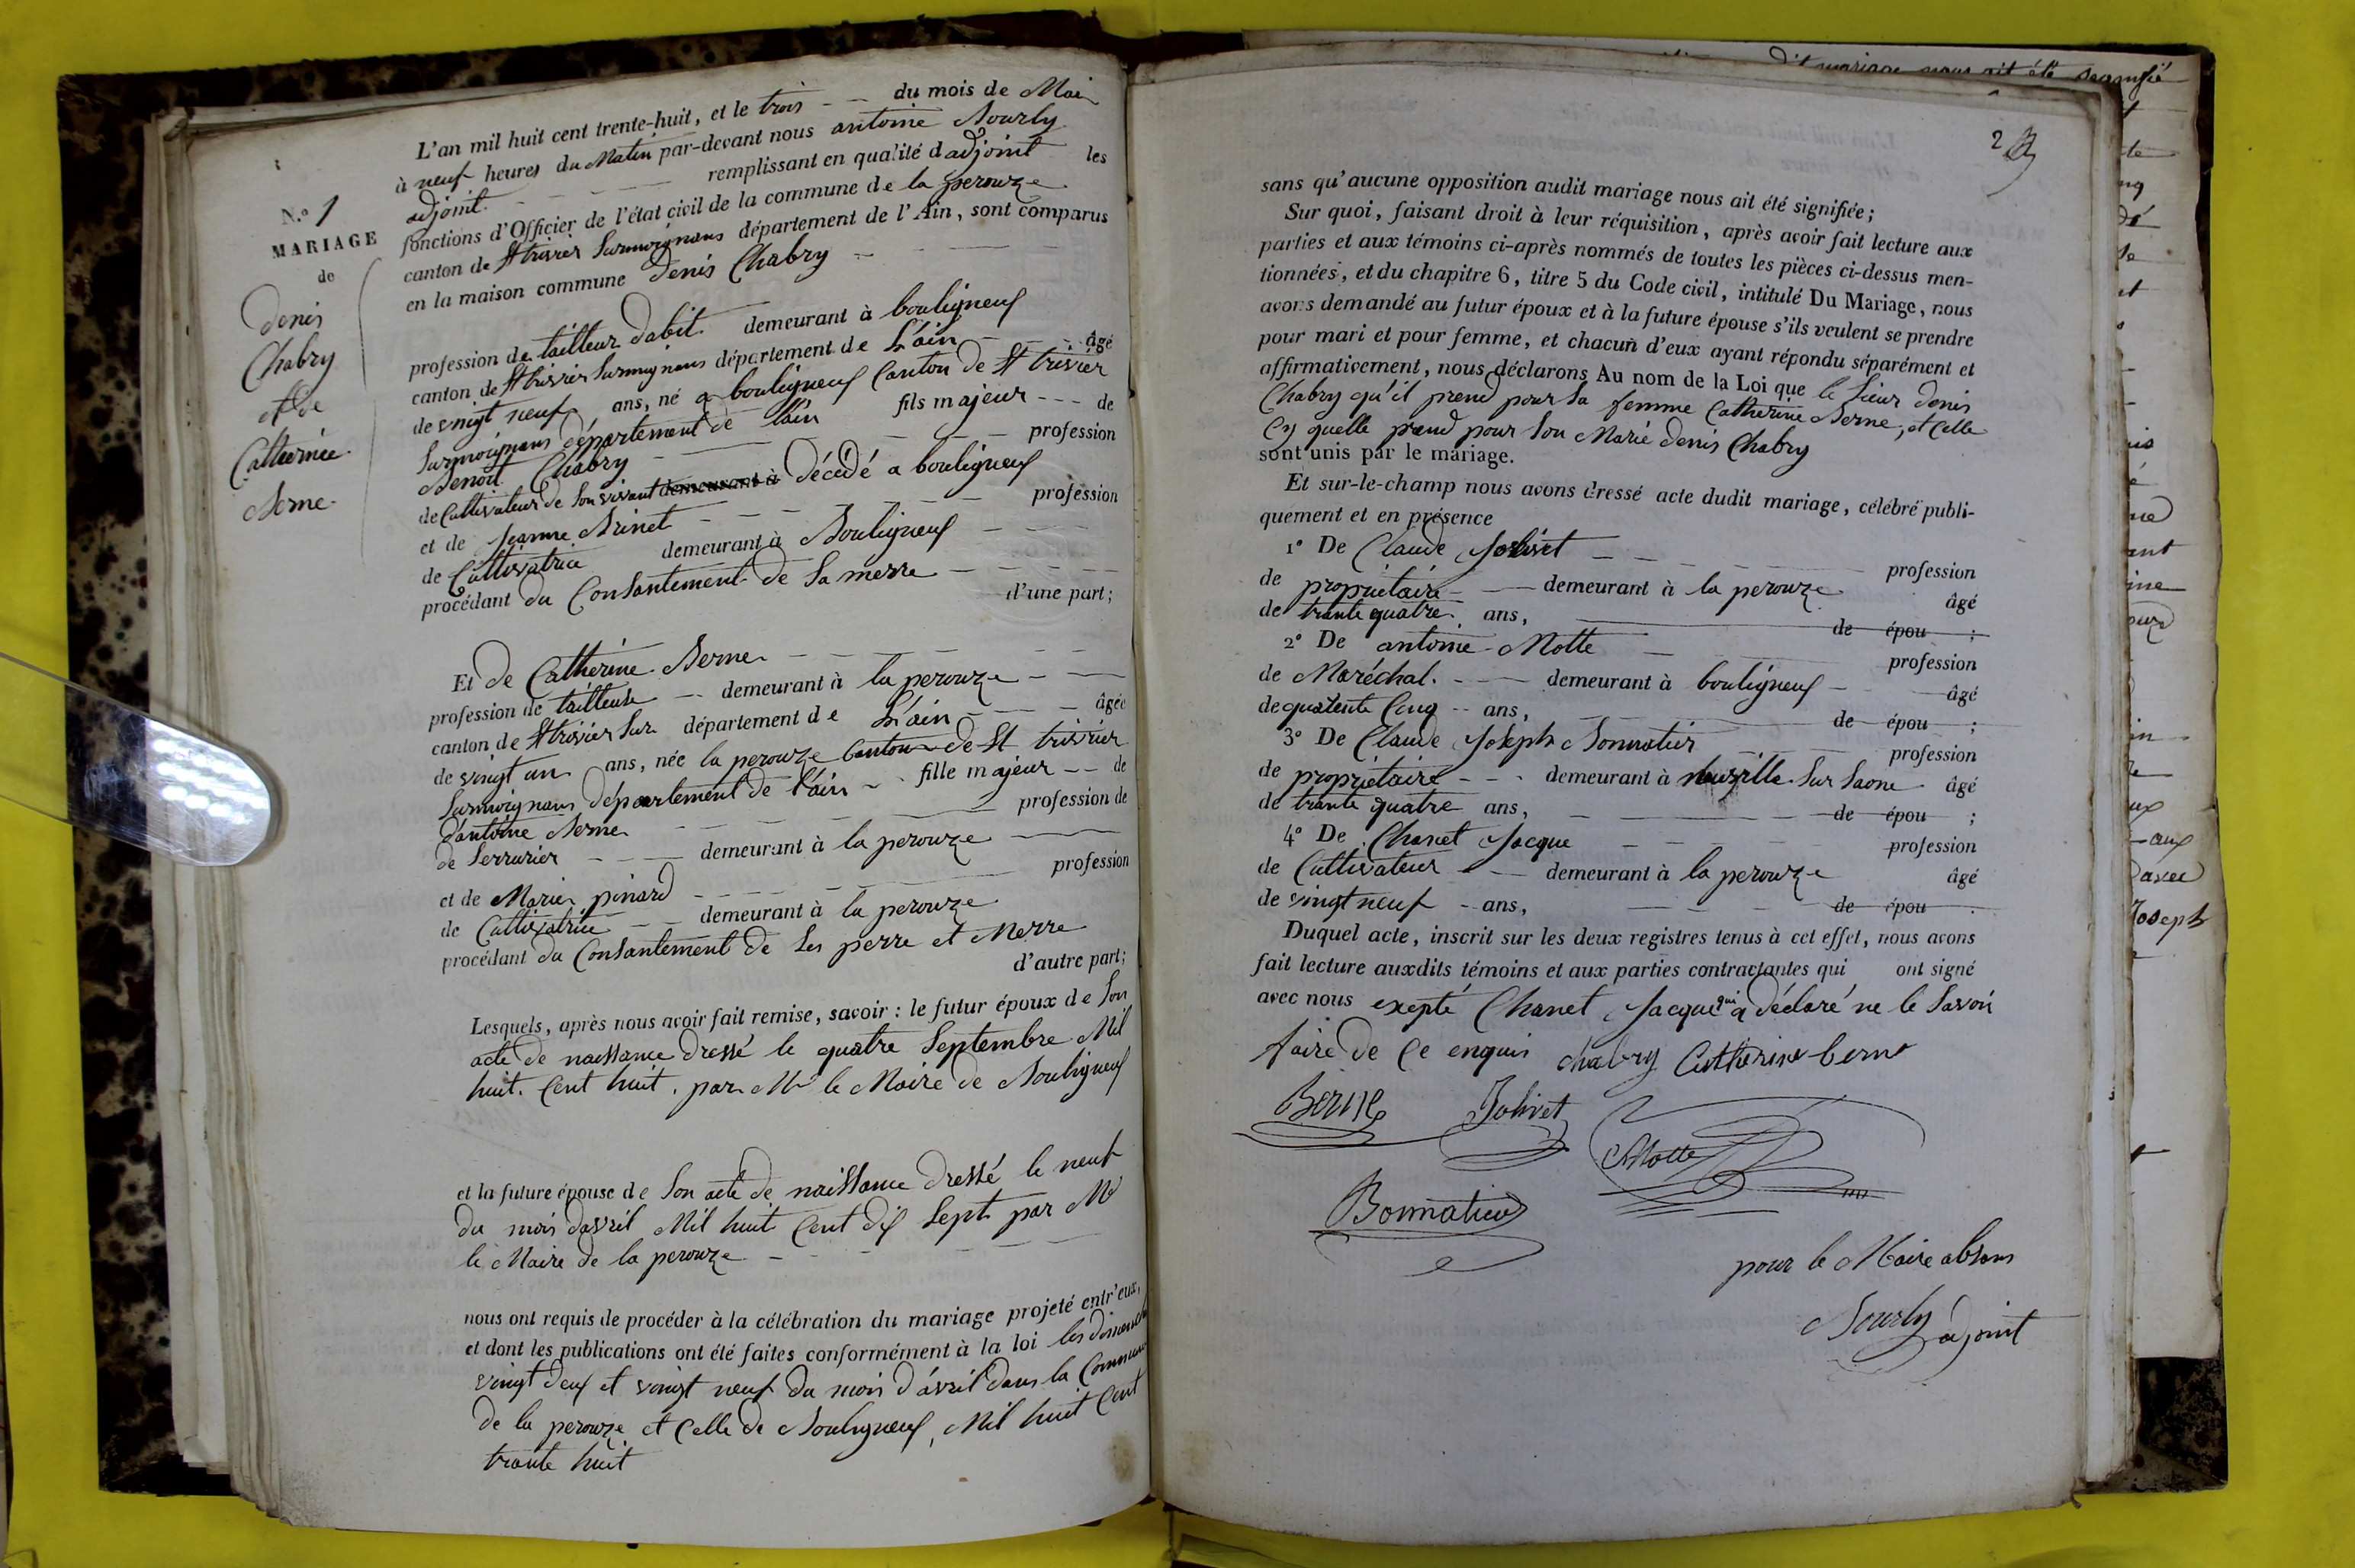 L'an mil huit cent trente-huit, et le trois du mois de Mai
à neuf heures du Matin par-devant nous antoine Bourly
adjoint remplissant en qualité d'adjoint les
fonctions d'Officier de l'état civil de la commune de la perouze
canton de St trivier Surmoignans département de l'Ain, sont comparus
en la maison commune denis Chabry
N.º 1
MARIAGE
de
denis
Chabry
et de
Catherine
Berne
profession de tailleur dabit demeurant à bouligneux
canton de St trivier Surmoignans département de L'ain âgé
de vingt neuf ans, né a bouligneux Canton de St trivier
Surmoignans département de l'ain fils majeur de
Benoit Chabry profession
de Cultivateur de Son vivant demeurant à Décédé a bouligneux
et de Jeanne Brinet profession
de Cultivatrice demeurant à Bouligneux
procédant du Consantement de Sa merre
d'une part;
Et de Catherine Berne
profession de tailleuse demeurant à la perouze
canton de St trivier Sur département de L'ain âgée
de vingt un ans, née la perouze Canton de St trivier
Surmoignans département de l'ain fille majeur de
d'antoine Berne profession de
de Serrurier demeurant à la perouze
et de Marie pinard profession
de Cultivatrice demeurant à la perouze
procédant du Consantement de Ses perre et Merre
d'autre part;
Lesquels, après nous avoir fait remise, savoir : le futur époux de Son
acte de naissance dressé le quatre Septembre Mil
huit Cent huit, par Mr le Maire de Bouligneux
et la future épouse de Son acte de naissance dressé le neuf
du mois davril Mil huit Cent dix Sept par Mr
le Maire de la perouze
nous ont requis de procéder à la célébration du mariage projeté entr'eux,
et dont les publications ont été faites conformément à la loi les dimanche
vingt deux et vingt neuf du mois d'avril dans la Commune
de la perouze et Celle de Bouligneux, Mil huit Cent
trante huit
2
sans qu'aucune opposition audit mariage nous ait été signifiée;
Sur quoi, faisant droit à leur réquisition, après avoir fait lecture aux
parties et aux témoins ci-après nommés de toutes les pièces ci-dessus men-
tionnées, et du chapitre 6, titre 5 du Code civil, intitulé Du Mariage, nous
avons demandé au futur époux et à la future épouse s'ils veulent se prendre
pour mari et pour femme, et chacun d'eux ayant répondu séparément et
affirmativement, nous déclarons Au nom de la Loi que le Sieur denis
Chabry qu'il prend pour Sa femme Catherine Berne, et Celle
Cy quelle prend pour Son Marie denis Chabry
sont unis par le mariage.
Et sur-le-champ nous avons dressé acte dudit mariage, célébré publi-
quement et en présence
1º De Claude Jolivet profession
de propriétaire demeurant à la perouze âgé
de trante quatre ans, de épou ;
2º De antoine Motte profession
de Maréchal demeurant à bouligneux âgé
de quarente Cinq ans, de épou ;
3º De Claude Joseph Bonnatier profession
de propriétaire demeurant à Neuville Sur Saone âgé
de trante quatre ans, de épou ;
4º De Chanet Jacque profession
de Cultivateur demeurant à la perouze âgé
de vingt neuf ans, de épou .
Duquel acte, inscrit sur les deux registres tenus à cet effet, nous avons
fait lecture auxdits témoins et aux parties contractantes qui ont signé
avec nous exepté Chanet Jacque qui a déclaré ne le Savoir
faire de Ce enquis chabry Catherine berne
Berne Jolivet
Motte
Bonnatier
pour le Maire absans
Bourly adjoint